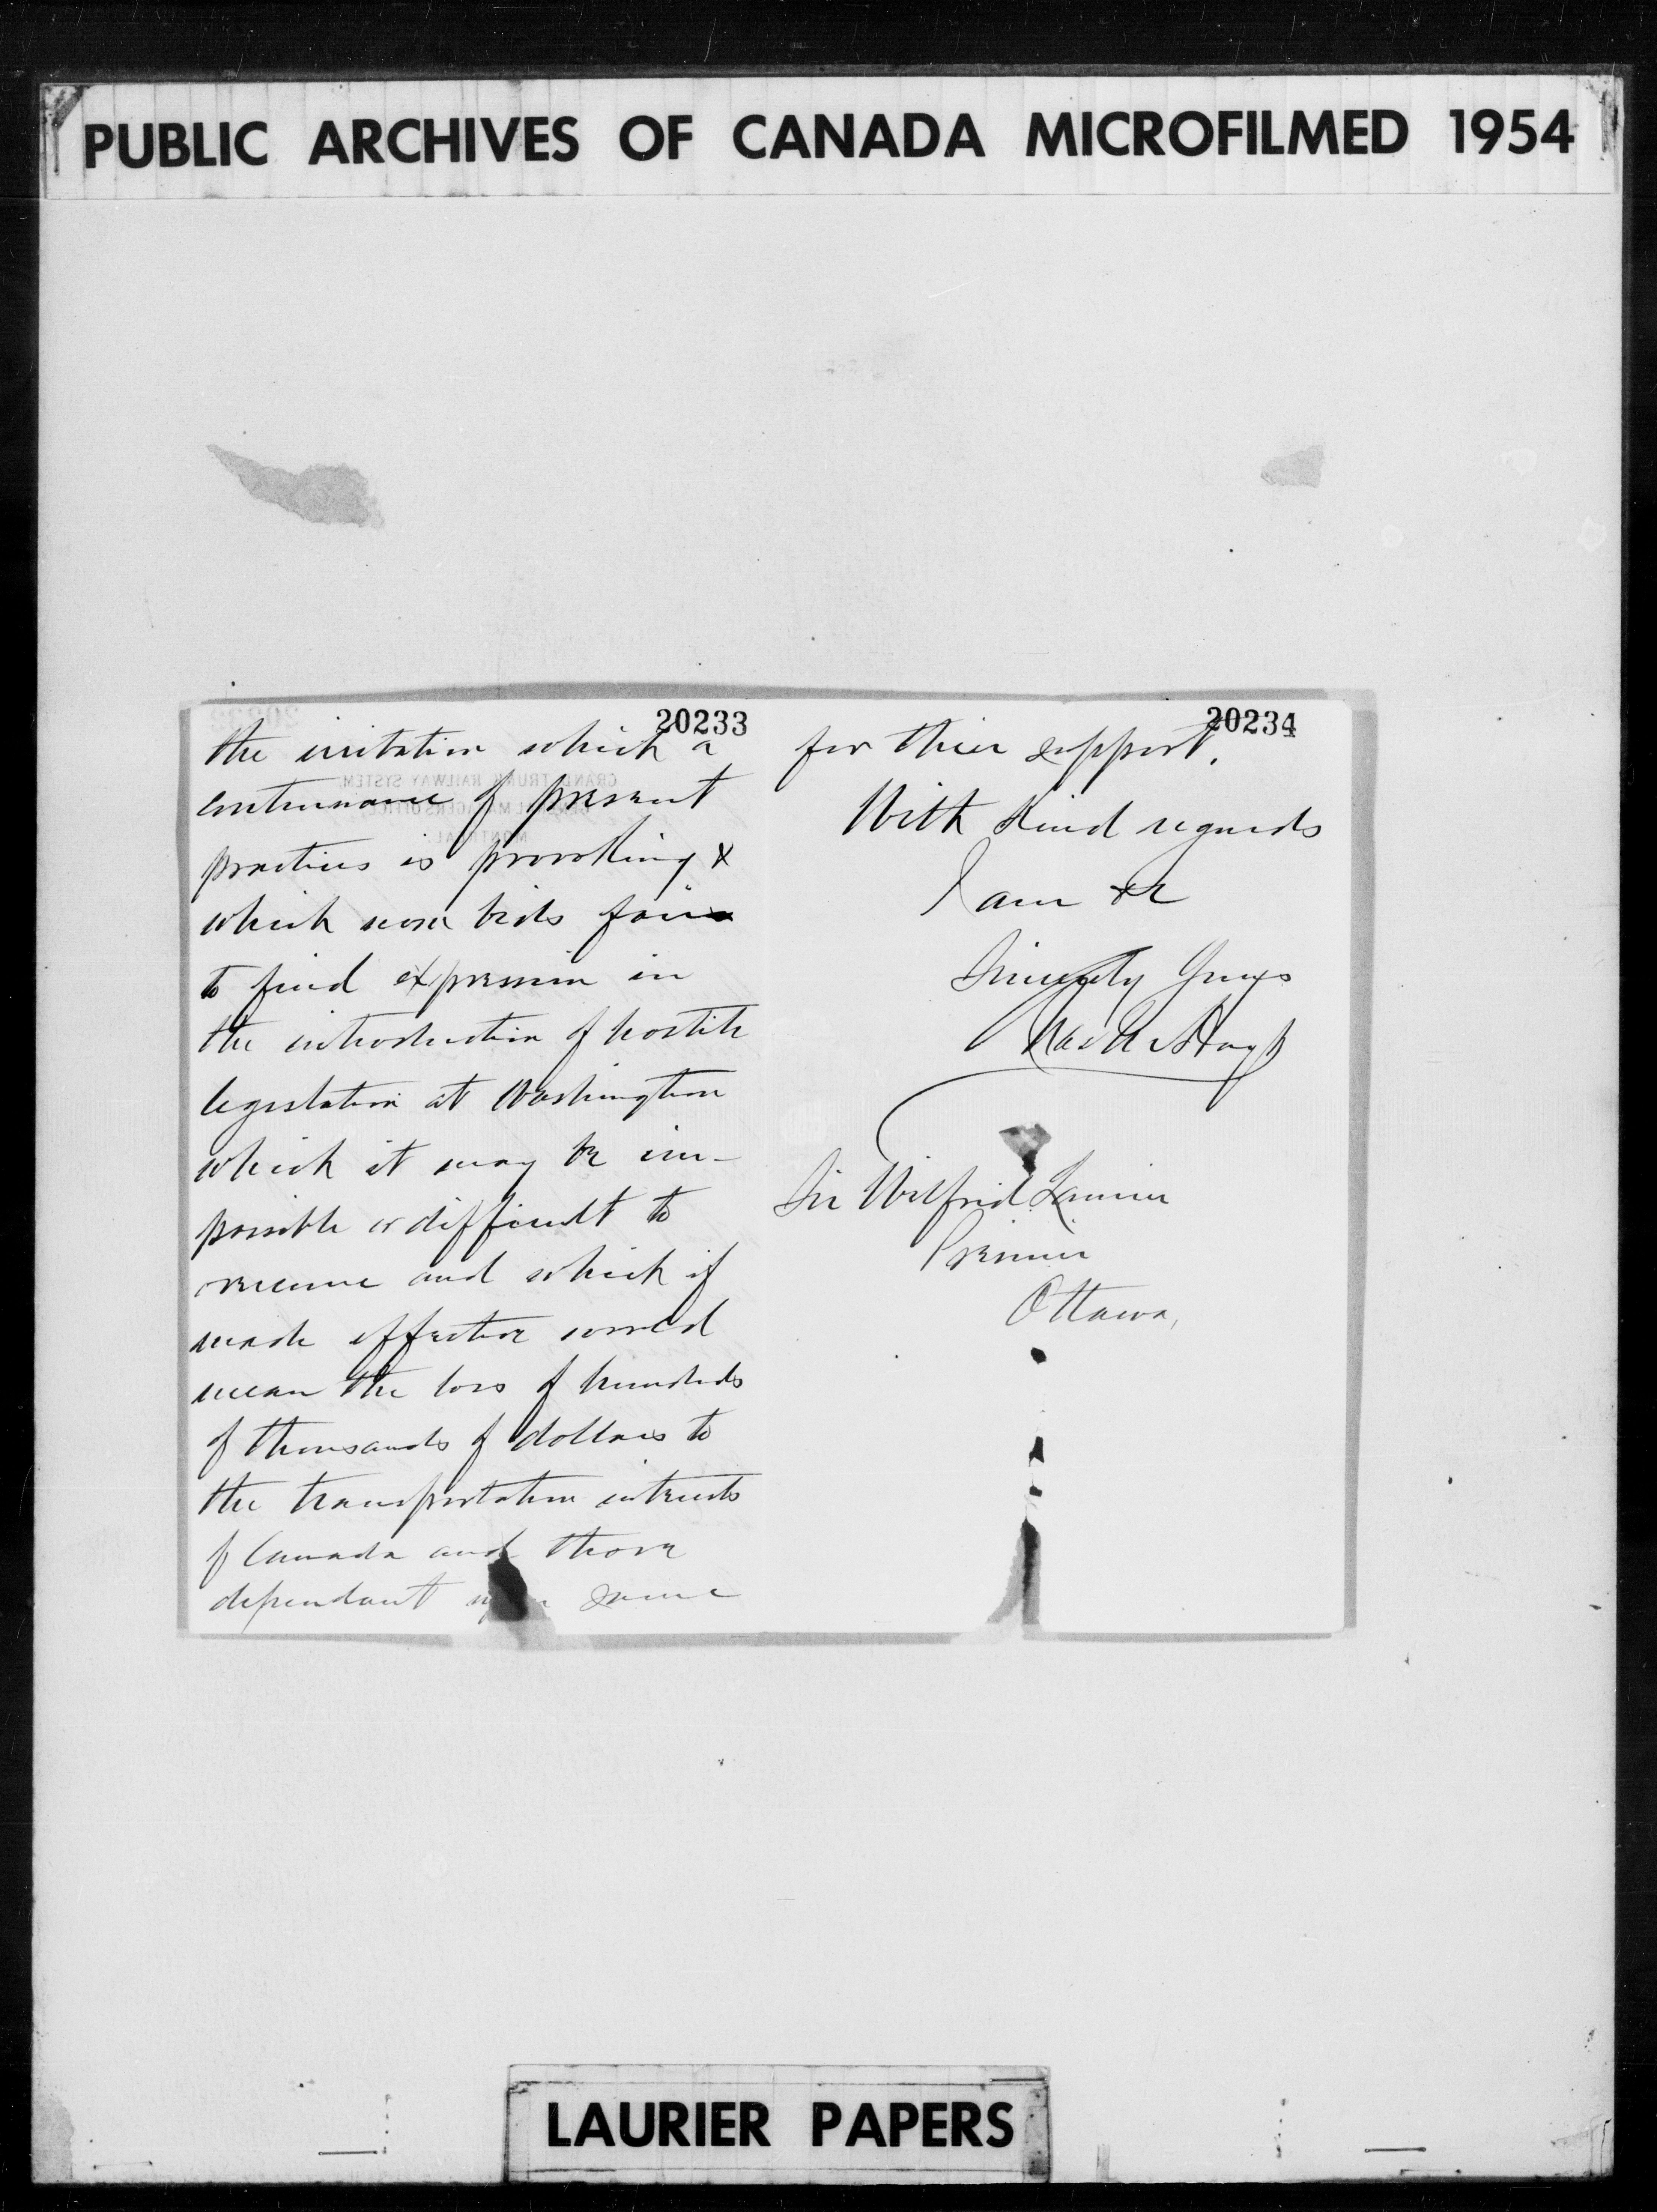 PUBLIC ARCHIVES OF CANADA MICROFILMED 1954
20233
the irritation which a
continuance of present
practices is provoking &
which now bids fair
to find expression in
the introduction of hostile
legislation at Washington
which it may be im-
possible or difficult to
overcome and which if
made effective would
mean the loss of hundreds
of thousands of dollars to
the transportation interests
of Canada and those
dependant upon same
20234
for their support.
With kind regards
I am &c
Sincerely Yours
Chas M Hays
Sir Wilfrid Laurier
Premier
Ottawa,
LAURIER PAPERS